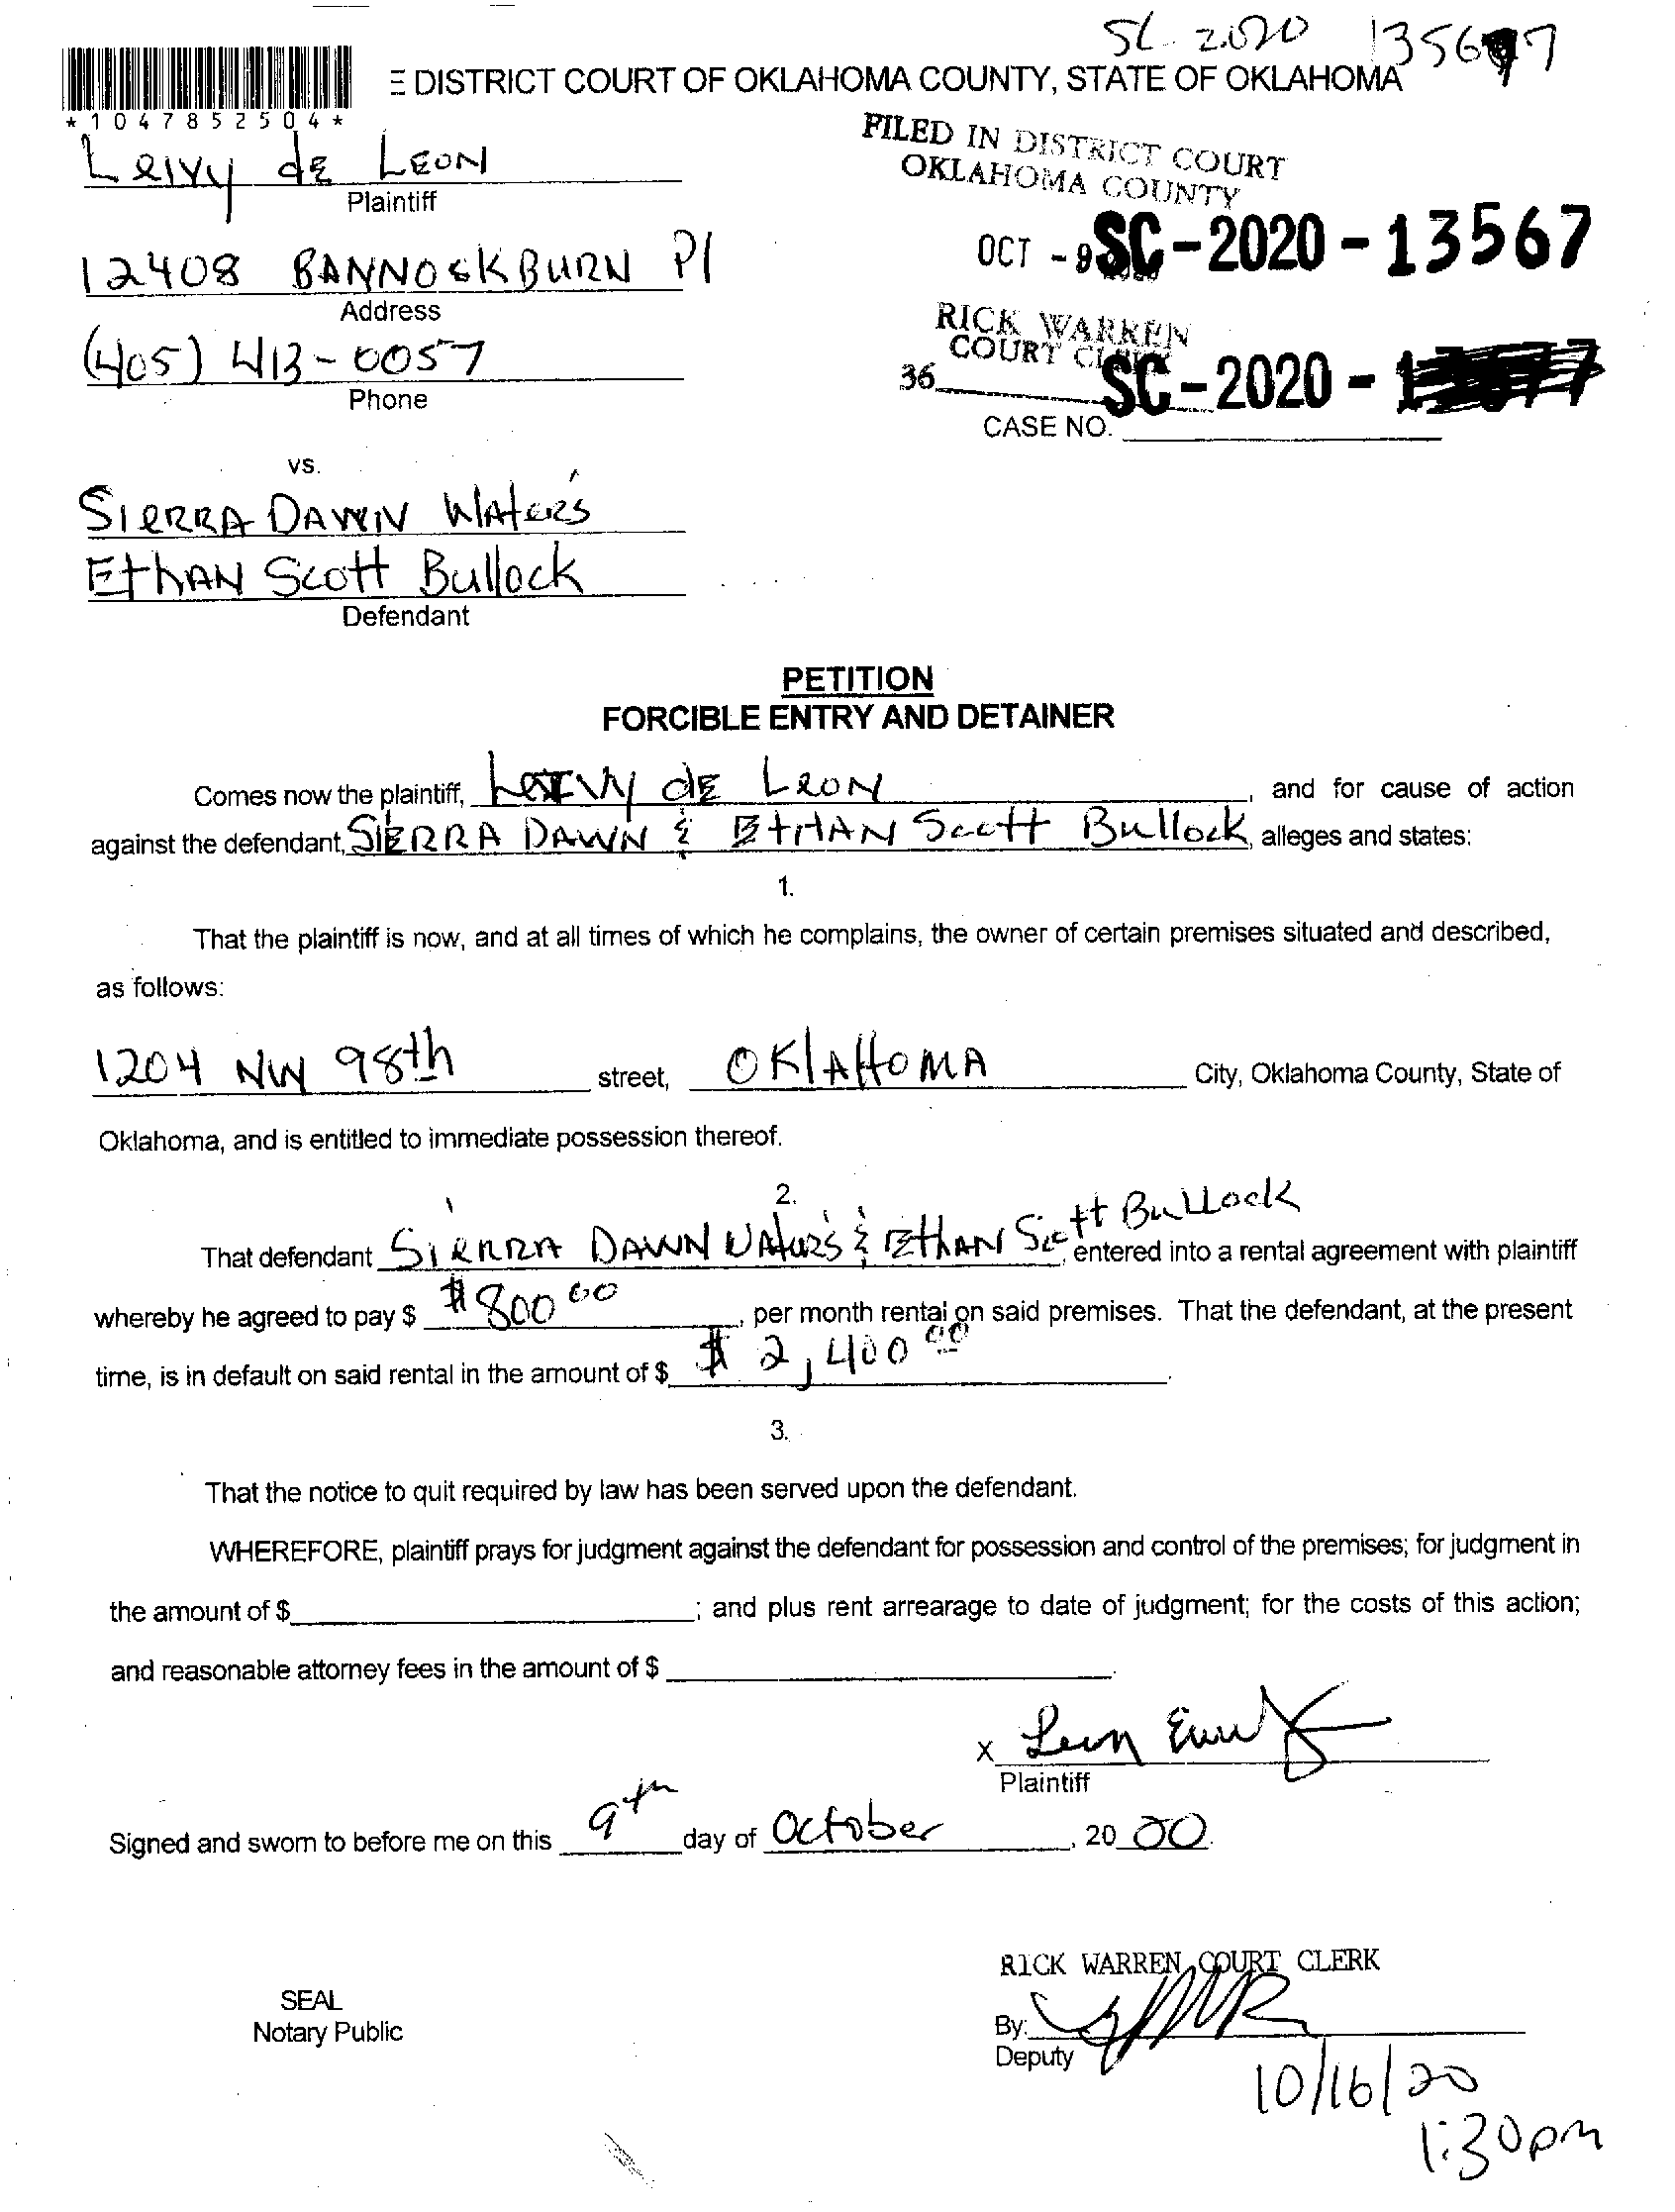 SC 2020 13567
E DISTRICT COURT OF OKLAHOMA COUNTY, STATE OF OKLAHOMA
*1047852504*
FILED IN DISTRICT COURT
OKLAHOMA COUNTY
Leivy de LEON
Plaintiff
OCT - 9 2020
SC-2020-13567
12408 BANNOCKBURN Pl
Address
RICK WARREN
COURT CLERK
(405) 413-0057
Phone
36
SC-2020-
CASE NO.
vs.
SIERRA DAWN WAters
EthAN Scott Bullock
Defendant
PETITION
FORCIBLE ENTRY AND DETAINER
Comes now the plaintiff, Leivy de Leon, and for cause of action
against the defendant, SIERRA DAWN & EtHAN Scott Bullock, alleges and states:
1.
That the plaintiff is now, and at all times of which he complains, the owner of certain premises situated and described,
as follows:
1204 NW 98th street, OKlAHOMA City, Oklahoma County, State of
Oklahoma, and is entitled to immediate possession thereof.
2.
That defendant SIERRA DAWN WAters & EthAN Scott Bullock, entered into a rental agreement with plaintiff
whereby he agreed to pay $ $800 00, per month rental on said premises. That the defendant, at the present
time, is in default on said rental in the amount of $ $2,400 00.
3.
That the notice to quit required by law has been served upon the defendant.
WHEREFORE, plaintiff prays for judgment against the defendant for possession and control of the premises; for judgment in
the amount of $ ; and plus rent arrearage to date of judgment; for the costs of this action;
and reasonable attorney fees in the amount of $ .
x
Plaintiff
Signed and sworn to before me on this 9th day of October, 20 20.
RICK WARREN, COURT CLERK
SEAL
Notary Public
By:
Deputy
10/16/20
1:30pm